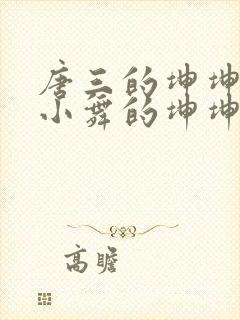 唐三的坤坤
小舞的坤坤
高瞻